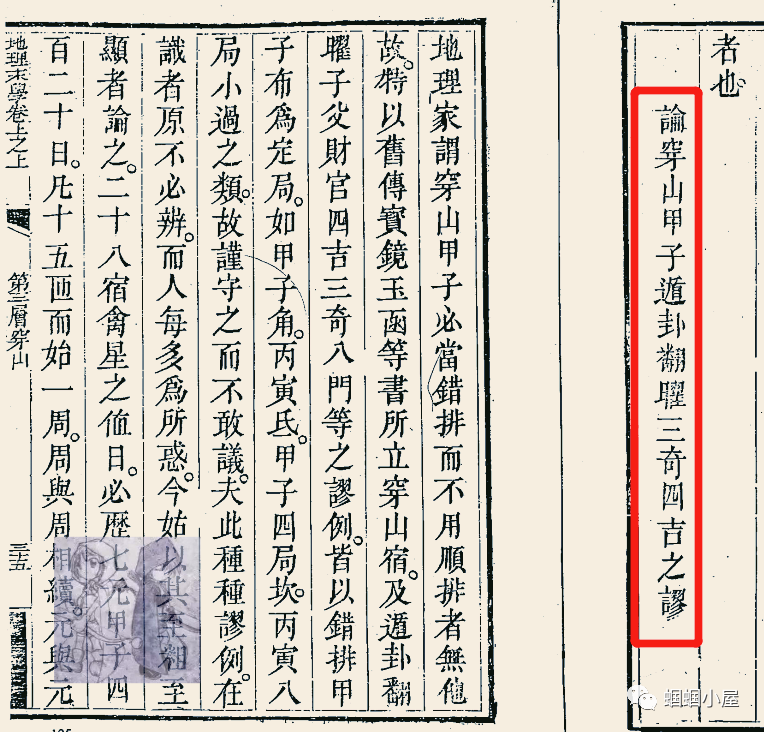 者也。
論穿山甲子遁卦翻曜三奇四吉之謬
地理家謂穿山甲子必當錯排而不用順排者無他
故。特以舊傳寶鏡玉函等書所立穿山宿。及遁卦翻
曜子父財官四吉三奇八門等之謬例。皆以錯排甲
子布爲定局。如甲子角。丙寅氐。甲子四局坎。丙寅八
局小過之類。故謹守之而不敢議。夫此種種謬例。在
識者原不必辨。而人每多爲所惑。今姑以其至粗至
顯者論之。二十八宿禽星之値日。必歷七元甲子四
百二十日。凡十五匝而始一周。周與周相續。元與元
地理末學卷上之上
第三層穿山
三十五
蝈蝈小屋